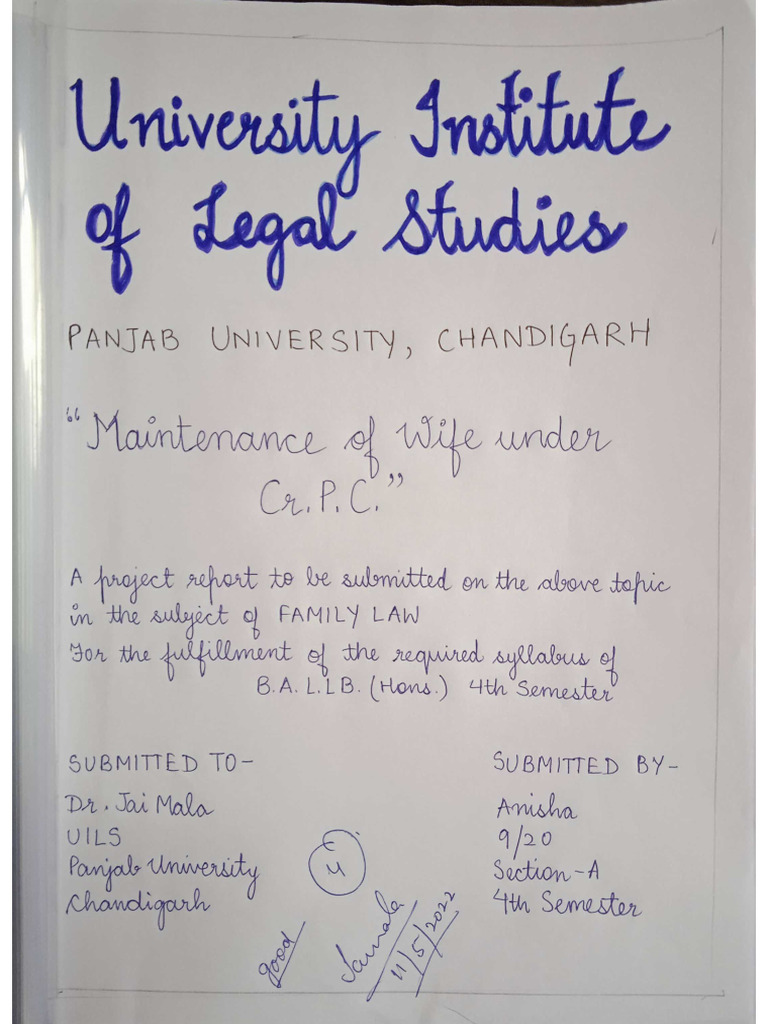 University Institute
of Legal Studies
PANJAB UNIVERSITY, CHANDIGARH
“Maintenance of Wife under
Cr.P.C.”
A project report to be submitted on the above topic
in the subject of FAMILY LAW
For the fulfillment of the required syllabus of
B.A.L.LB. (Hons.) 4th Semester
SUBMITTED TO-
Dr. Jai Mala
UILS
Panjab University
Chandigarh
SUBMITTED BY-
Anisha
9/20
Section-A
4th Semester
4
good
11/5/2022